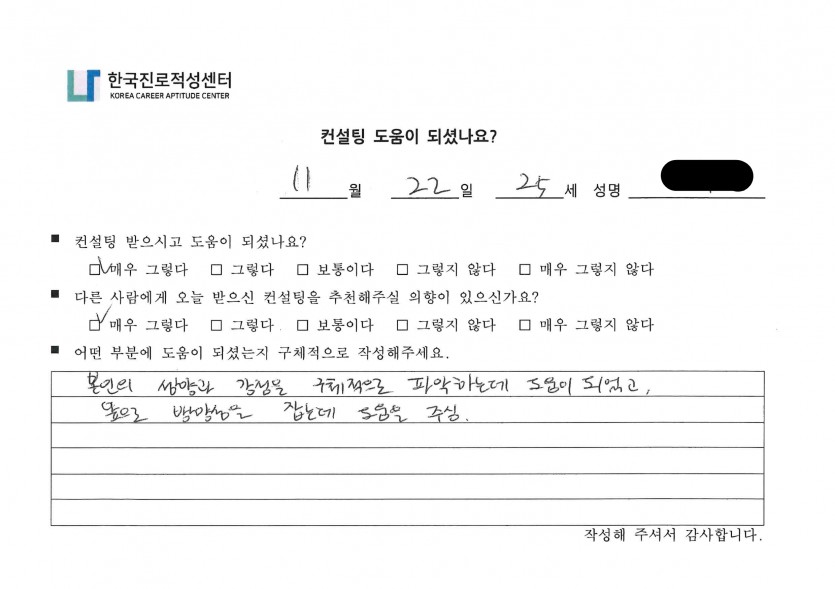 한국진로적성센터
KOREA CAREER APTITUDE CENTER
컨설팅 도움이 되셨나요?
11 월 22 일 25 세 성명
■ 컨설팅 받으시고 도움이 되셨나요?
☑ 매우 그렇다 □ 그렇다 □ 보통이다 □ 그렇지 않다 □ 매우 그렇지 않다
■ 다른 사람에게 오늘 받으신 컨설팅을 추천해주실 의향이 있으신가요?
☑ 매우 그렇다 □ 그렇다 □ 보통이다 □ 그렇지 않다 □ 매우 그렇지 않다
■ 어떤 부분에 도움이 되셨는지 구체적으로 작성해주세요.
본인의 성향과 강점을 구체적으로 파악하는데 도움이 되었고,
앞으로 방향성을 잡는데 도움을 주심.
작성해 주셔서 감사합니다.